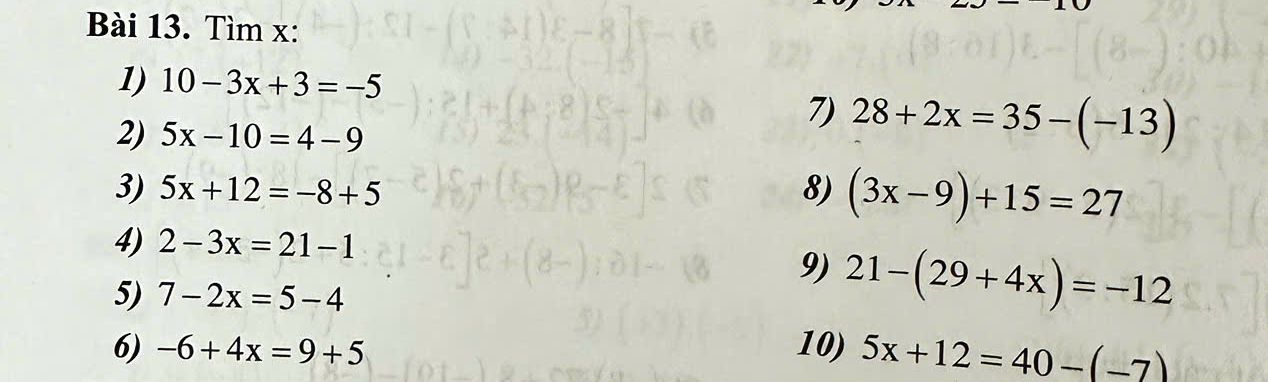 Bài 13. Tìm x:
1) 10 − 3x + 3 = −5
2) 5x − 10 = 4 − 9
3) 5x + 12 = −8 + 5
4) 2 − 3x = 21 − 1
5) 7 − 2x = 5 − 4
6) −6 + 4x = 9 + 5
7) 28 + 2x = 35 − (−13)
8) (3x − 9) + 15 = 27
9) 21 − (29 + 4x) = −12
10) 5x + 12 = 40 − (−7)